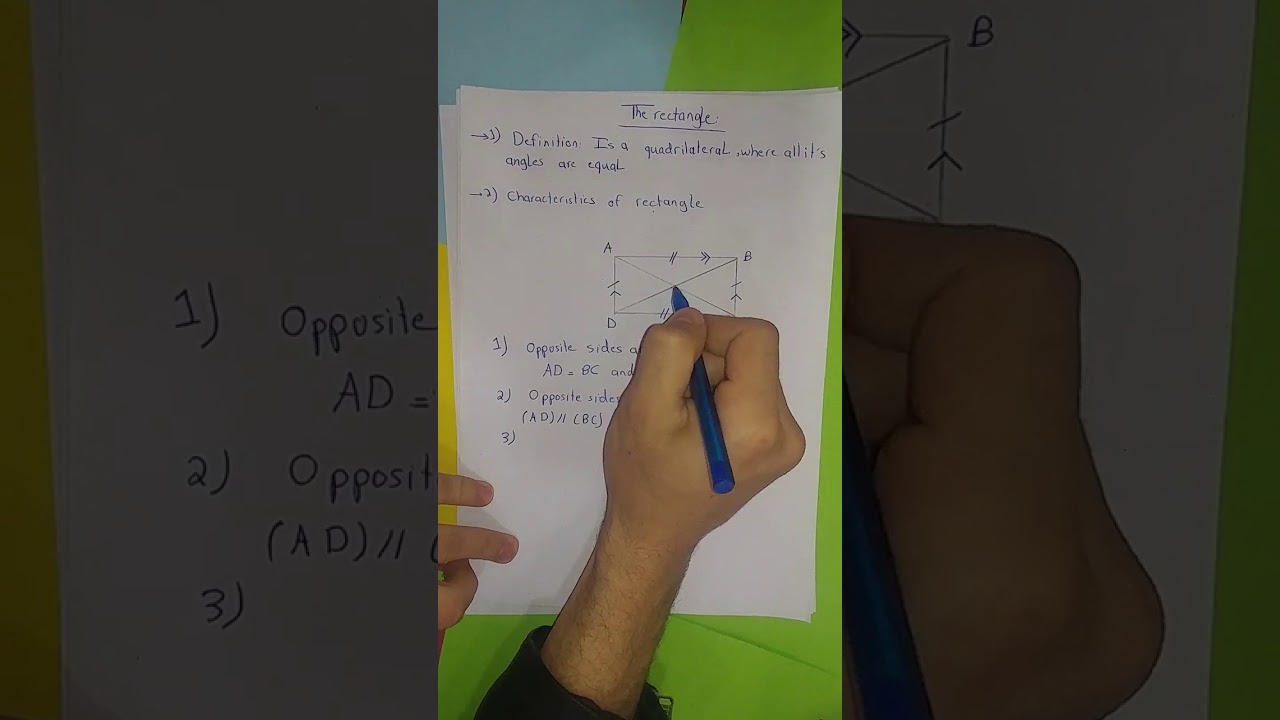 The rectangle:
→1) Definition: Is a quadrilateral, where all it's
angles are equal
→2) Characteristics of rectangle
A B
D
1) Opposite sides
AD = BC and
2) Opposite sides
(AD) // (BC)
3)